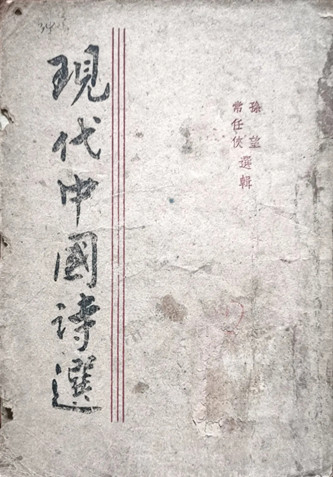 孫望
常任俠選輯
現代中國詩選